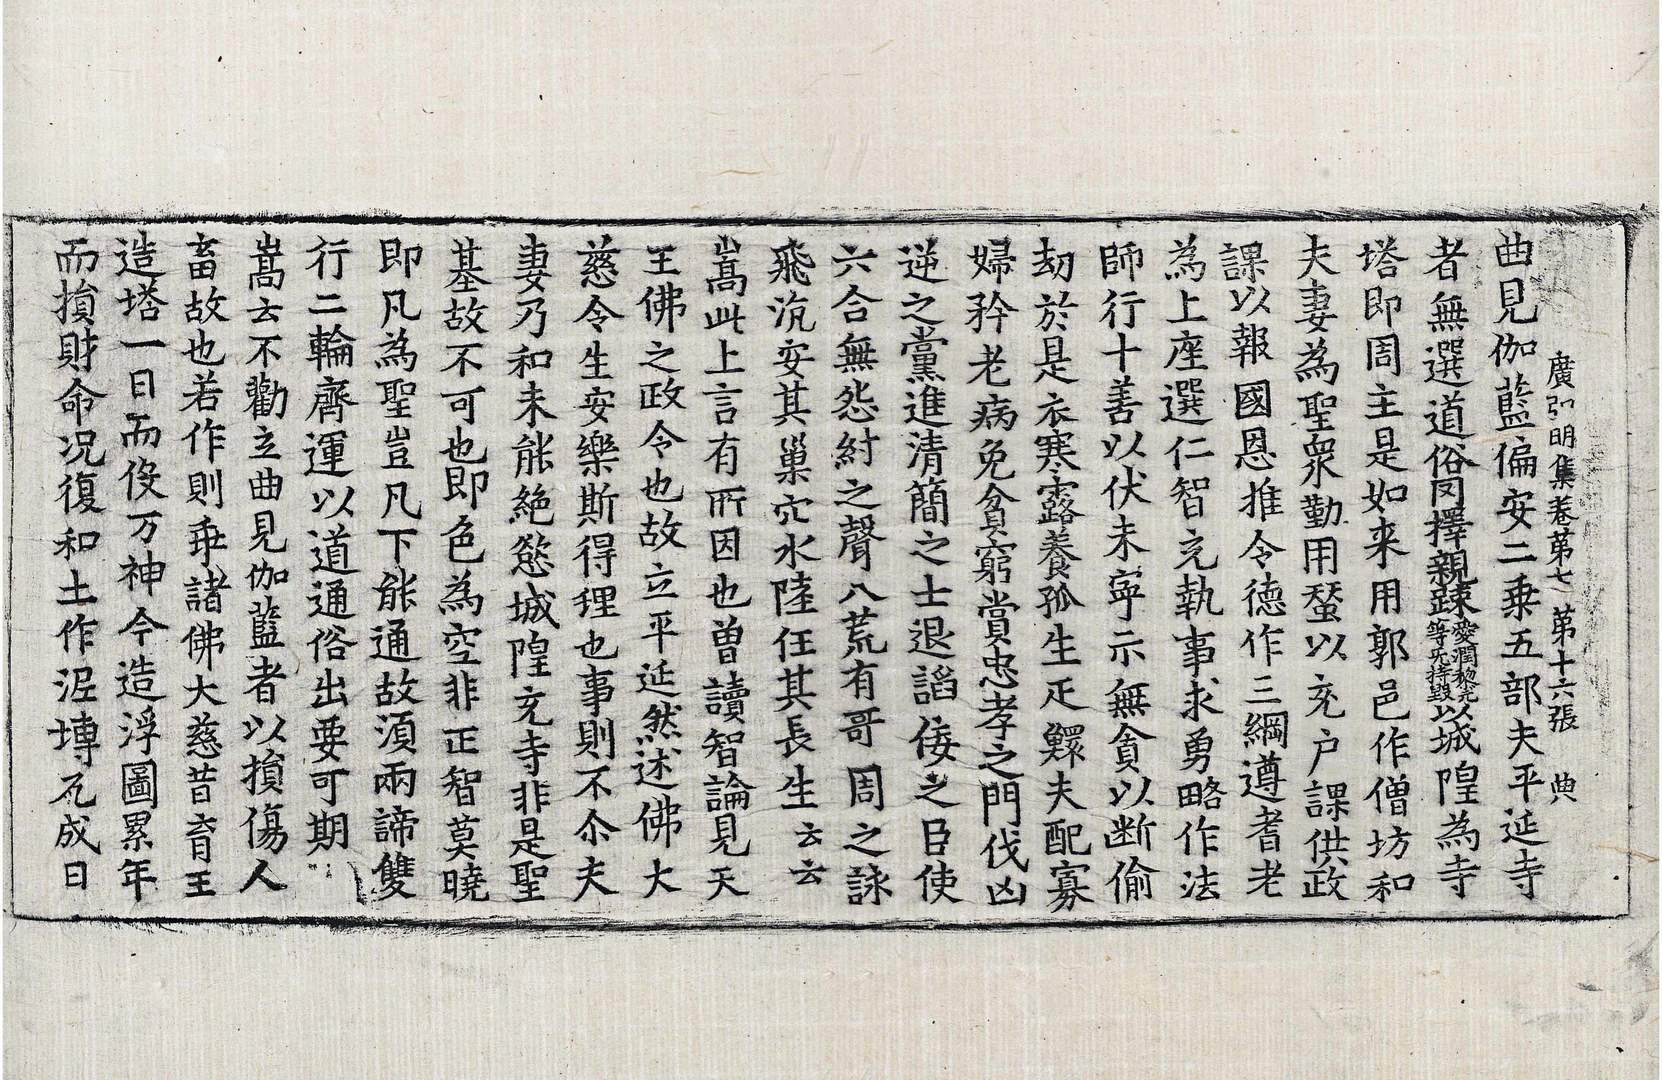 廣弘明集卷第七　第十六張　典
曲見伽藍偏安二乗五部夫平延寺
者無選道俗罔擇親踈愛潤黎元等无持毀以城隍為寺
塔即周主是如来用郭邑作僧坊和
夫妻為聖衆勤用蝅以充户課供政
課以報國恩推令德作三綱遵耆老
為上座選仁智充執事求勇略作法
師行十善以伏未寧示無貪以断偷
劫於是衣寒露養孤生疋鰥夫配寡
婦矜老病免貧窮賞忠孝之門伐凶
逆之黨進清簡之士退諂佞之臣使
六合無怨紂之聲八荒有哥周之詠
飛沉安其巢穴水陸任其長生云云
嵩此上言有所因也曽讀智論見天
王佛之政令也故立平延然述佛大
慈令生安樂斯得理也事則不尒夫
妻乃和未能絶慾城隍充寺非是聖
基故不可也即色為空非正智莫曉
即凡為聖豈凡下能通故湏兩諦雙
行二輪齊運以道通俗出要可期
嵩云不勸立曲見伽藍者以損傷人
畜故也若作則乖諸佛大慈昔育王
造塔一日而伇万神今造浮圖累年
而損財命况復和土作泥塼瓦成日